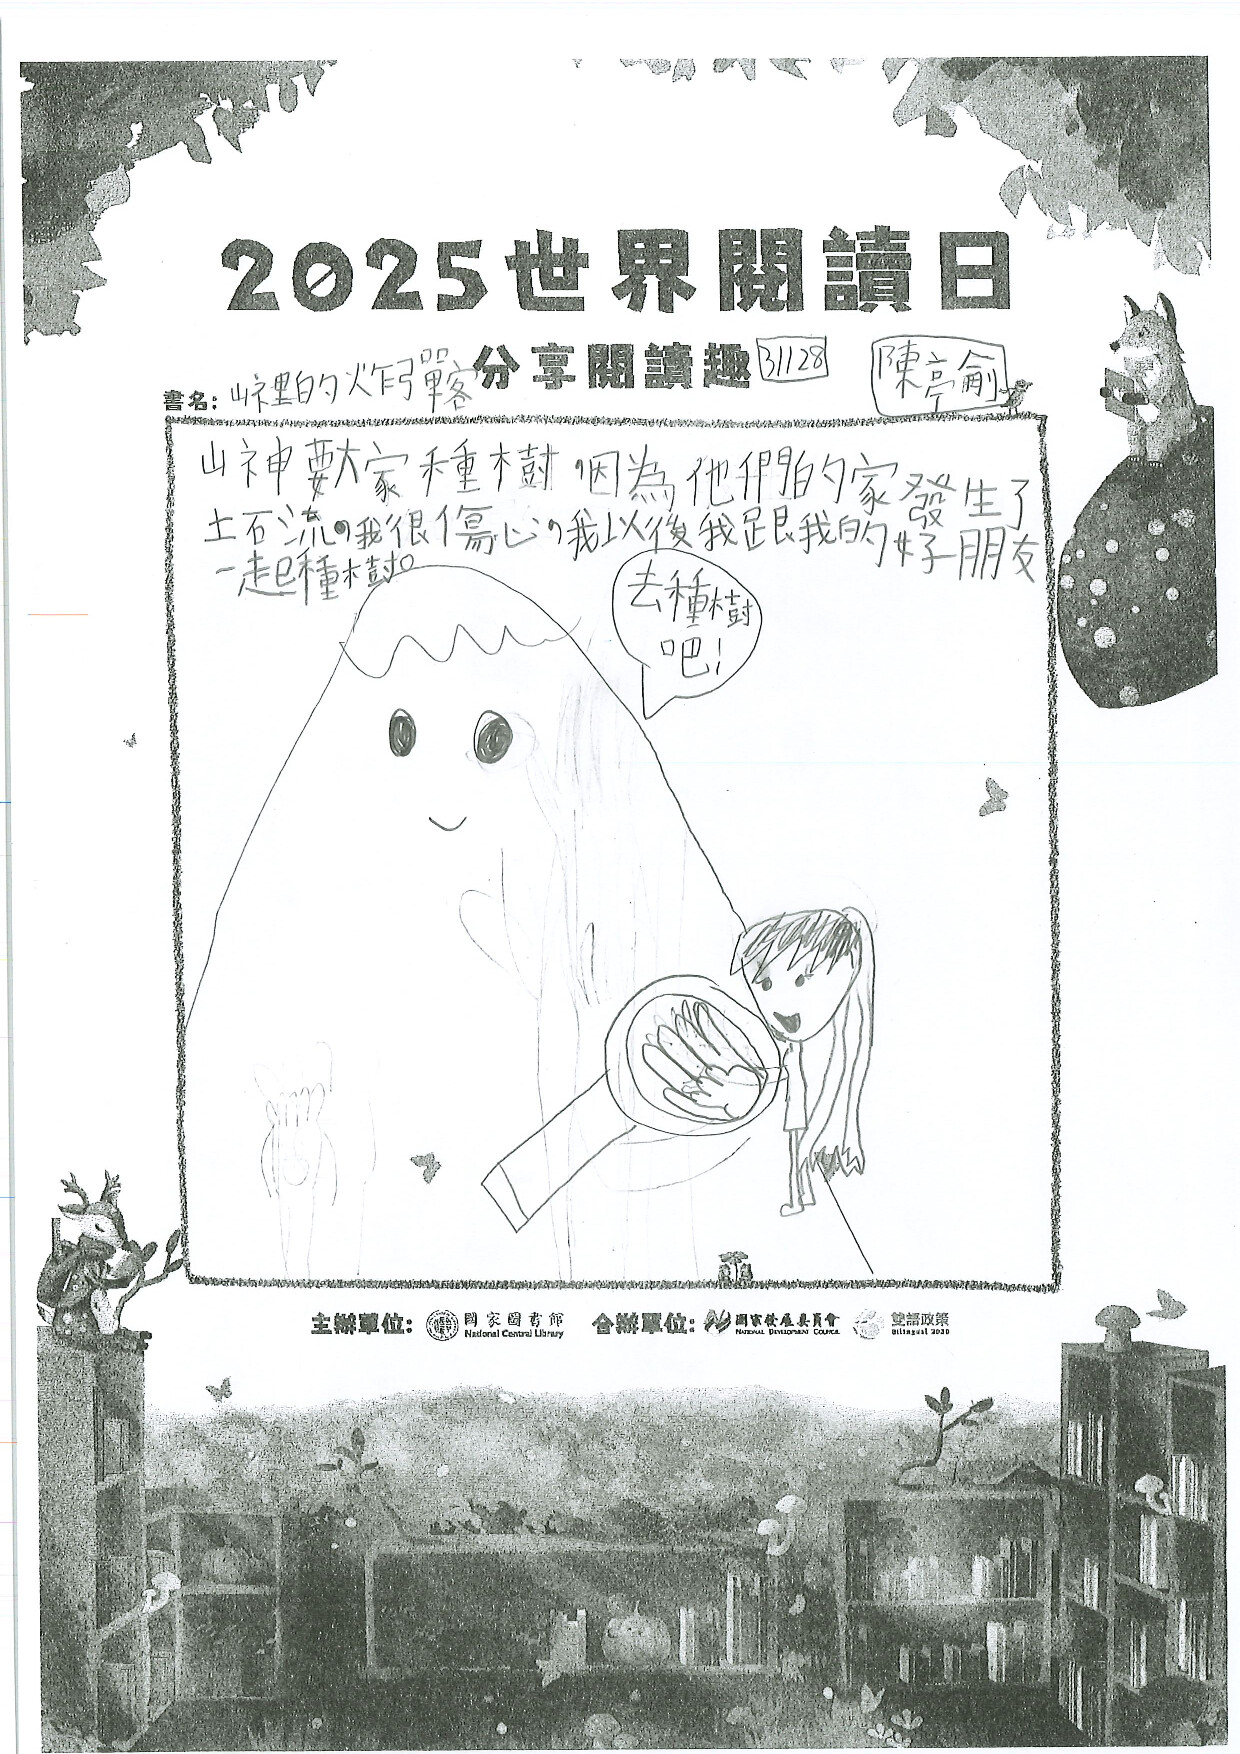 2025世界閱讀日
分享閱讀趣
31128
陳亭侖
書名:山裡的炸彈客
山神要大家種樹，因為他們的家發生了
土石流，我很傷心，我以後我跟我的好朋友
一起種樹。
去種樹
吧！
主辦單位: 國家圖書館 National Central Library 合辦單位: 國家發展委員會 NATIONAL DEVELOPMENT COUNCIL 雙語政策 Bilingual 2030